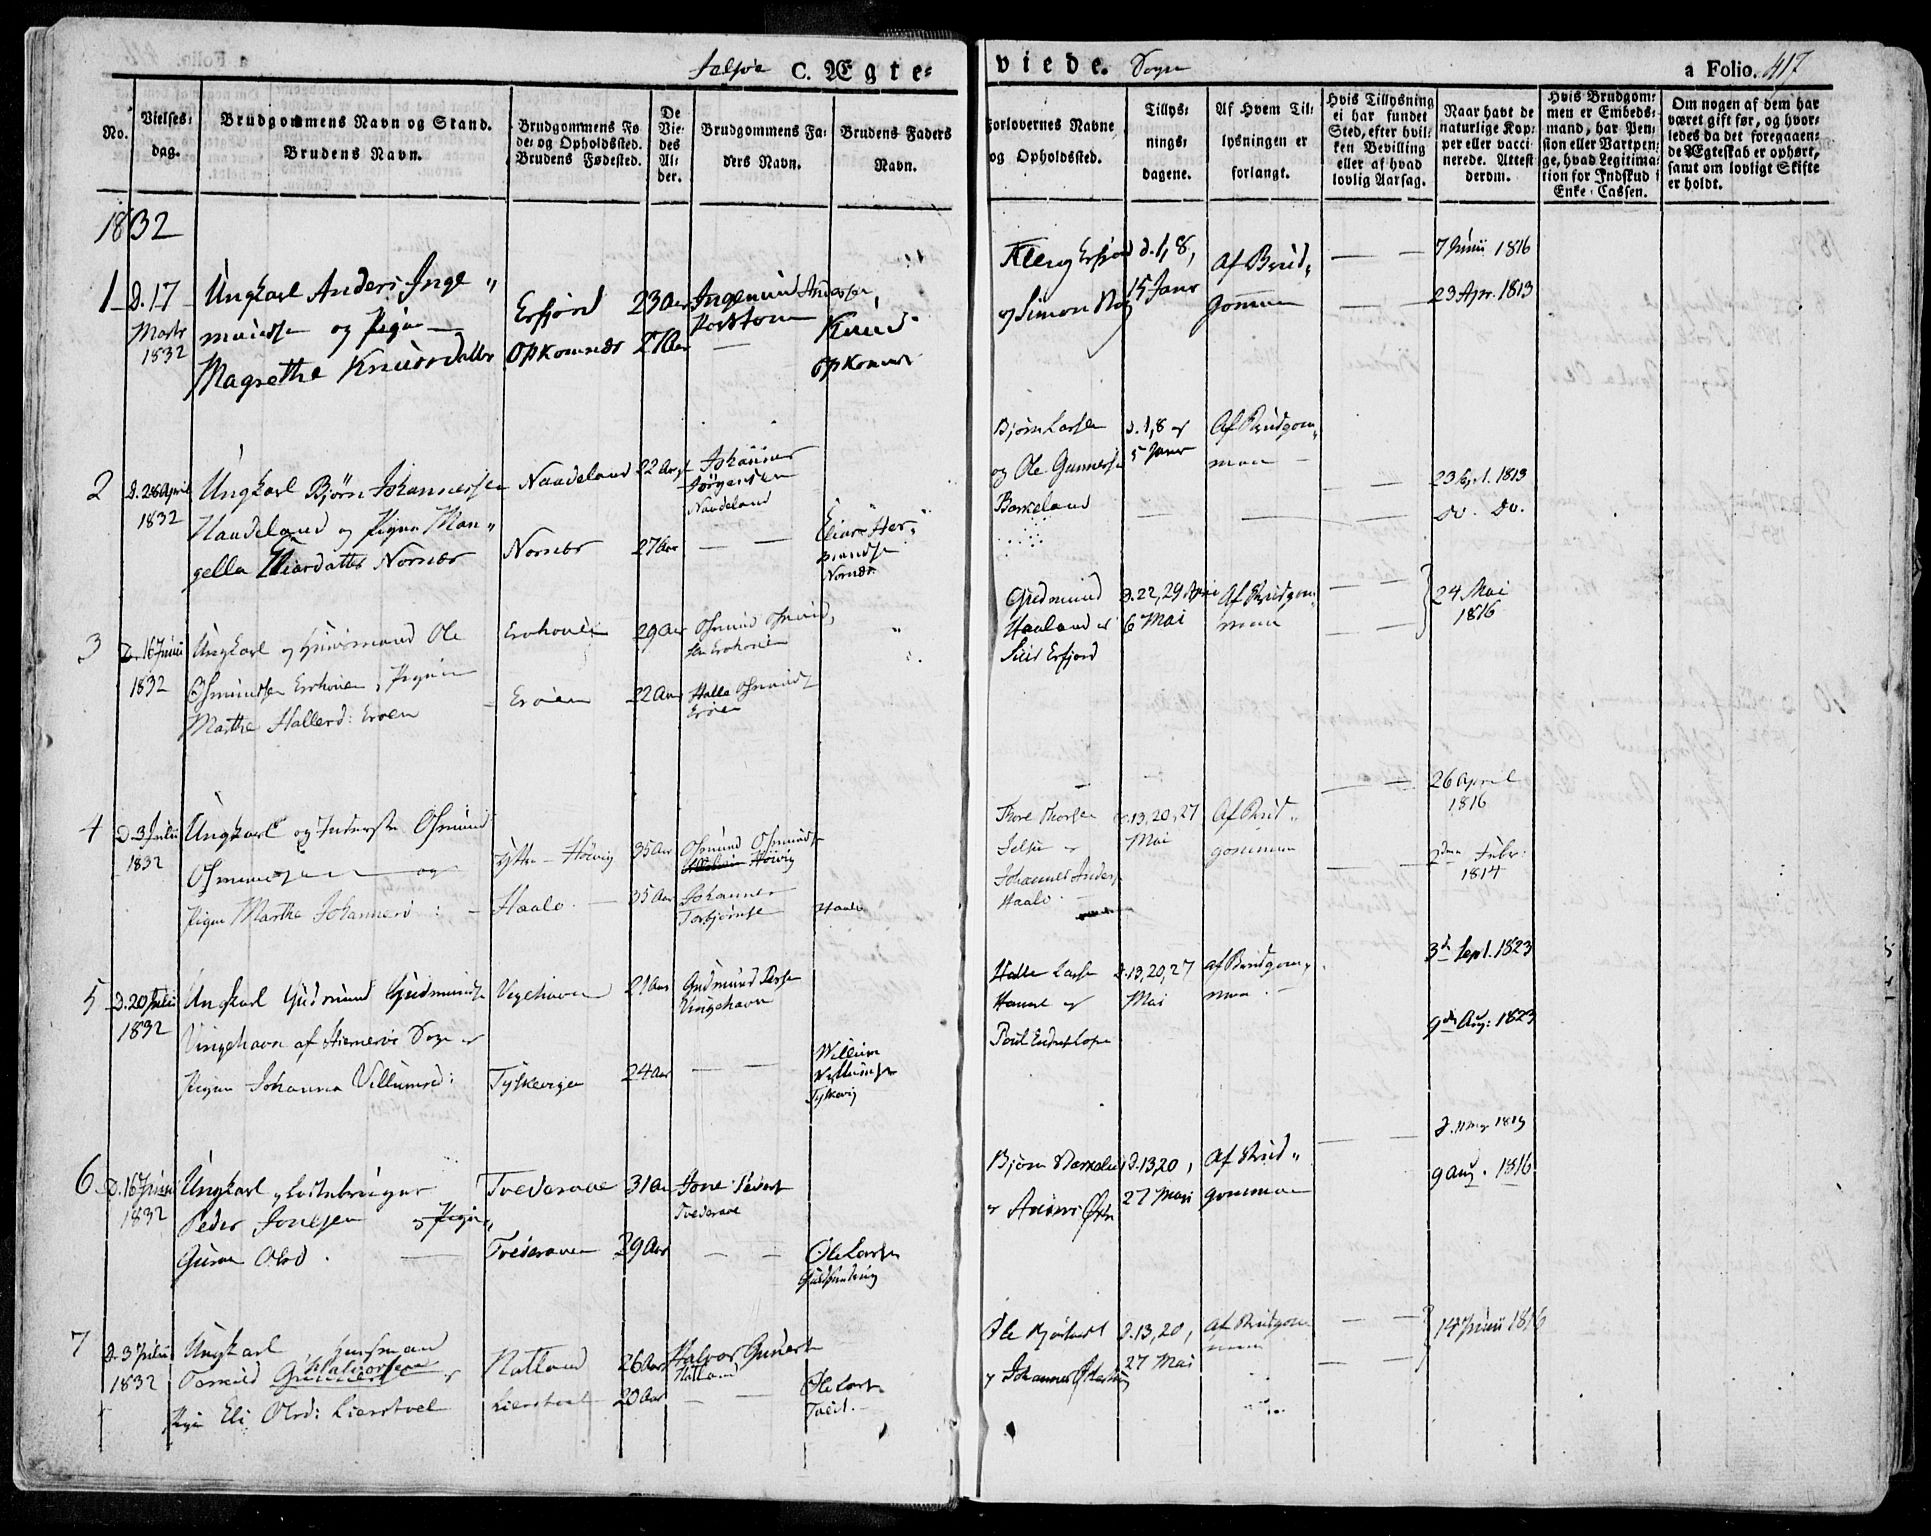 Jelsøe C. Ægte-
viede. Sogn
a Folio. 417
No.
Vielses-
dag.
Brudgommens Navn og Stand.
Brudens Navn.
Brudgommens Fø-
de- og Opholdssted.
Brudens Fødested.
De
Vie-
des
Al-
der.
Brudgommens Fa-
ders Navn.
Brudens Faders
Navn.
Forlovernes Navne
og Opholdssted.
Tillys-
nings-
dagene.
Af Hvem Til-
lysningen er
forlangt.
Hvis Tillysning
ei har fundet
Sted, efter hvil-
ken Bevilling
eller af hvad
lovlig Aarsag.
Naar havt de
naturlige Kop-
per eller vacci-
nerede. Attest
derom.
Hvis Brudgom-
men er Embeds-
mand, har Pen-
sion eller Vartpen-
ge, hvad Legitima-
tion for Indskud i
Enke-Cassen.
Om nogen af dem har
været gift før, og hvor-
ledes da det foregaaen-
de Ægteskab er ophørt,
samt om lovligt Skifte
er holdt.
1832
1
D. 17
Marts
1832
Ungkarl Anders Inge„
mundsen og Pigen
Magrethe Knudsdatter
Erfjord
Opkomnær
23 Aar
27 Aar
Ingemund Andersen
Knud
Opkomnær
og Simon
d. 1, 8,
15 Janr
Af Brud„
gommen
7 Junii 1816
23 Apr. 1813
2
D. 28 April
1832
Ungkarl Bjørn Johannessen
Naadeland og Pigen Man„
gella Eliasdatter Nornær
Naadeland
Nornær
22 Aar
27 Aar
Johannes
Jørgensen
Naadeland
Elias Her„
mandsen
Nornær
Bjørn Larsen
og Ole Gunnersen
Barkeland
d. 1, 8 og
5 Janr
Af Brudgom„
men
23 Sept. 1813
Do. Do.
3
D. 16 Junii
1832
Ungkarl og Huusmand Ole
Osmundsen Erøhoien og Pigen
Marthe Hallesd: Erøen
Erøhoien
Erøien
29 Aar
22 Aar
Osmund Osmund„
sen Erøhoien
Halle Osmunds
Erøen
Gudmund
Haaland og
Siur Erfjord
D. 22, 29 April
6 Mai
Af Brudgom„
men
24 Mai
1816
4
D. 3 Julii
1832
Ungkarl og Inderste Osmund
Osmundsen og
Pigen Marthe Johannesd:
Ytre - Høivig
Haalo.
35 Aar
35 Aar
Osmund Osmunds
Høivig
Johannes
Torbjørnsen
Haalo
Thore Thorsen
Jelsøe og
Johannes Anders
Haalo
d. 13, 20, 27
Mai
Af Brud„
gommen
26 April
1816
2den Febr.
1814
5
D. 20 Julii
1832
Ungkarl Gudmund Gudmundsen
Vingehavn af Hiernerøe Sogn og
Pigen Johanna Villumsd:
Vigehavn
Tyskevigen
21 Aar
24 Aar
Gudmund Larsen
Vingehavn
Willum
Villumsen
Tyskevig
Halle Larsen
og
d. 13, 20, 27
Mai
af Brudgom„
men
3d Sept. 1823
9de Aug: 1823
6
D. 16 Junii
1832
Ungkarl og Leilændinger
Peder Jonesen og Pigen
Guroe Olsd.
Tvederaae
Tvederaaen
31 Aar
29 Aar
Jone Peders
Tvederaae
Ole Larsen
Bjørn Barkeland
d. 13, 20,
27 Mai
Af Brud„
gommen
d. 11 May 1819
9 Aug. 1816
7
D. 3 Julii
1832
Ungkarl Huusmand
Halvorsen
Pige Eli Olsd: Lierstvet
Natland
Lierstvet
26 Aar
20 Aar
Halvor Guners
Natland
Ole Lars
Tveit.
Ole
og Johannes
d. 13, 20,
27 Mai
af Brudgom
men
14 Junii 1816